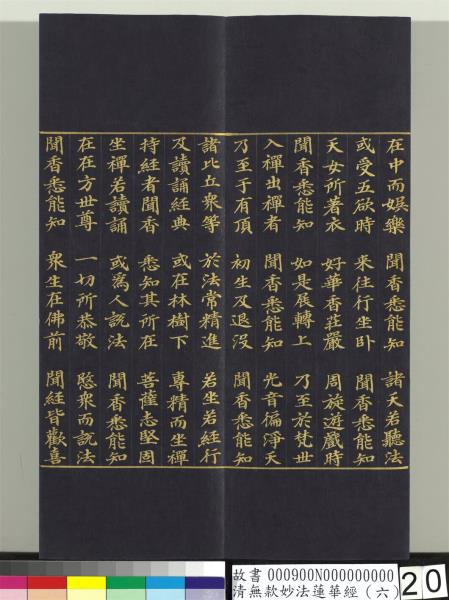 在中而娛樂 聞香悉能知 諸天若聽法
或受五欲時 來往行坐卧 聞香悉能知
天女所著衣 好華香莊嚴 周旋遊戲時
聞香悉能知 如是展轉上 乃至於梵世
入禪出禪者 聞香悉能知 光音徧淨天
乃至于有頂 初生及退沒 聞香悉能知
諸比丘衆等 於法常精進 若坐若經行
及讀誦經典 或在林樹下 專精而坐禪
持經者聞香 悉知其所在 菩薩志堅固
坐禪若讀誦 或爲人說法 聞香悉能知
在在方世尊 一切所恭敬 愍衆而說法
聞香悉能知 衆生在佛前 聞經皆歡喜
故書 000900N000000000
清無款妙法蓮華經(六)
20